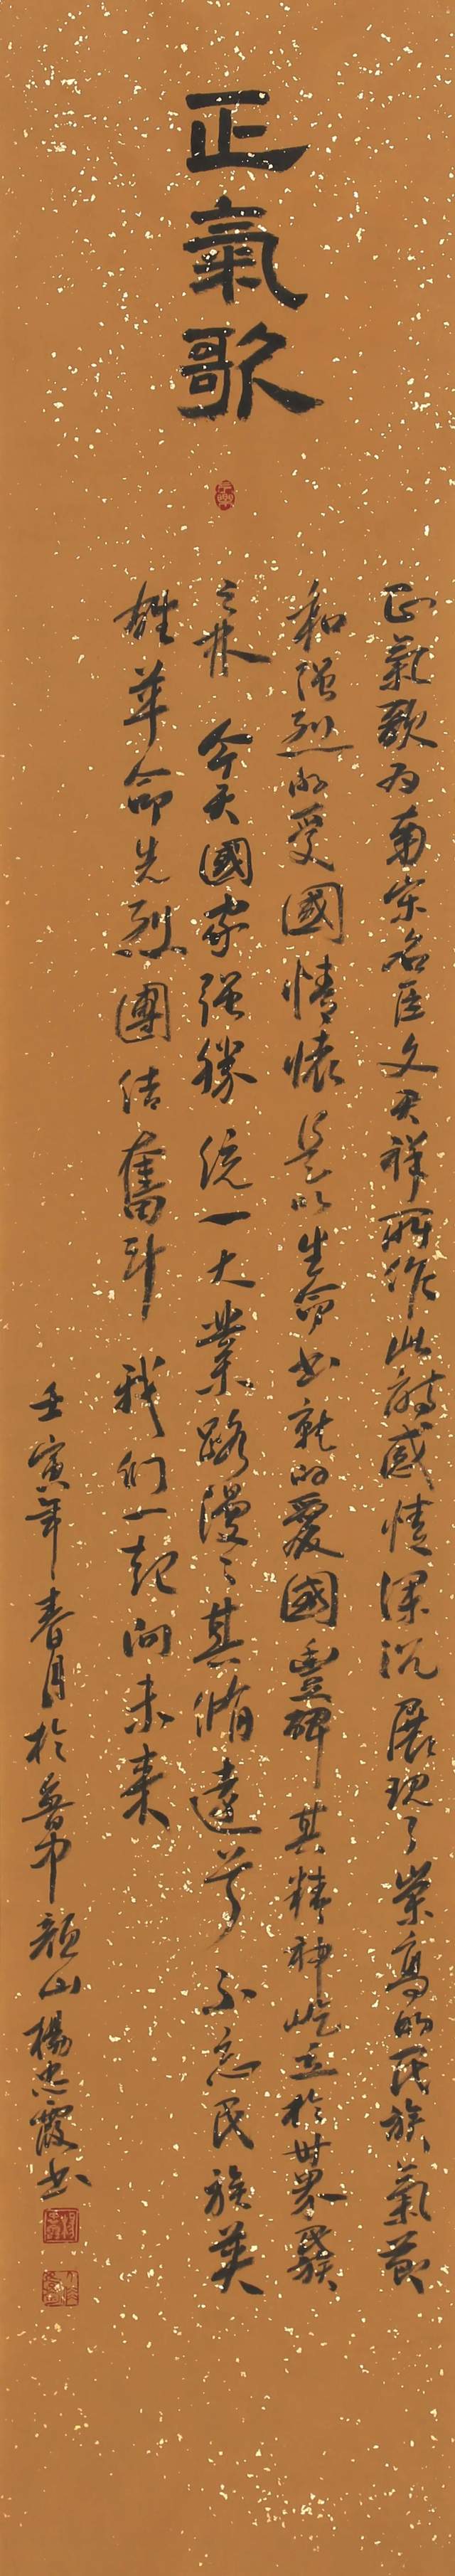 正氣歌
正氣歌为南宋名臣文天祥所作此诗感情深沉展现了崇高的民族氣节
和强烈的爱國情怀是以生命书就的爱國豐碑其精神屹立於世界民族
之林今天國家强勝统一大業路漫々其脩遠兮不忘民族英
雄革命先烈團结奮斗我们一起向未来
壬寅年春月於魯中颜山楊忠霞书